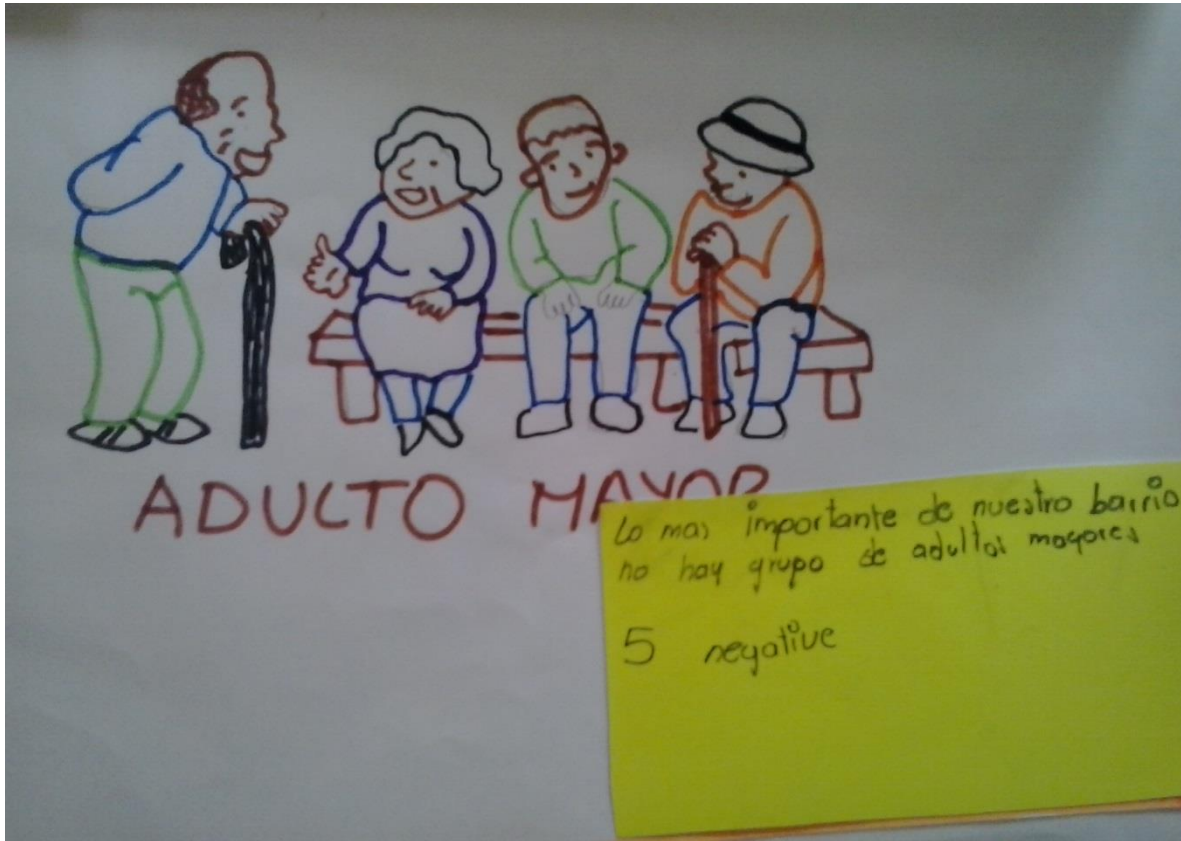 ADULTO MAYOR
Lo mas importante de nuestro barrio
no hay grupo de adultos mayores
5 negative